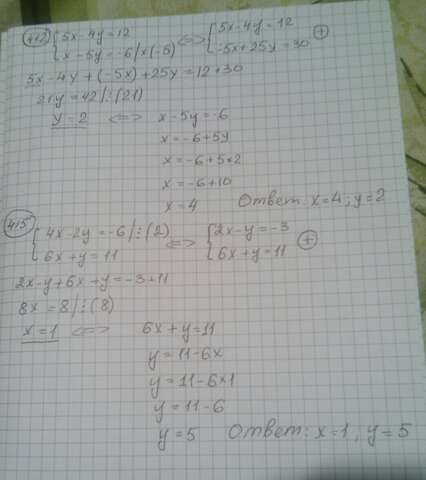 412) { 5x-4y=12 <=> { 5x-4y=12
x-5y=-6 | x(-5) -5x+25y=30 (+)
5x-4y+(-5x)+25y=12+30
21y=42 |:(21)
y=2 <=> x-5y=-6
x=-6+5y
x=-6+5×2
x=-6+10
x=4 Ответ: x=4; y=2
415) { 4x-2y=-6 |:(2) <=> { 2x-y=-3
6x+y=11 6x+y=11 (+)
2x-y+6x+y=-3+11
8x=8 |:(8)
x=1 <=> 6x+y=11
y=11-6x
y=11-6×1
y=11-6
y=5 Ответ: x=1, y=5